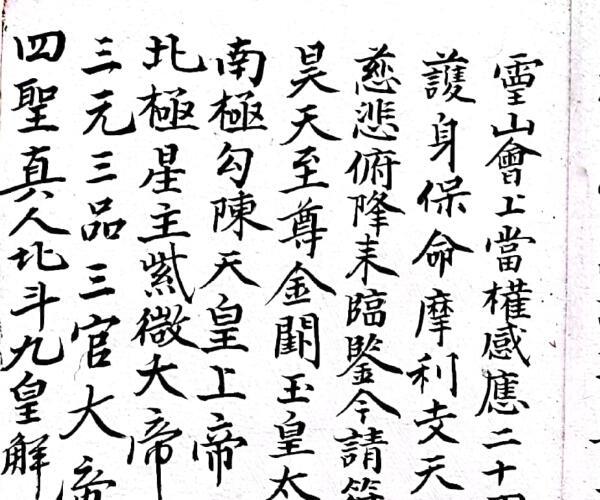 霊山會上當權感應二十
護身保命摩利支天
慈悲俯降来臨鑒今請
昊天至尊金闕玉皇太
南極勾陳天皇上帝
北極星主紫微大帝
三元三品三官大帝
四聖真人北斗九皇解